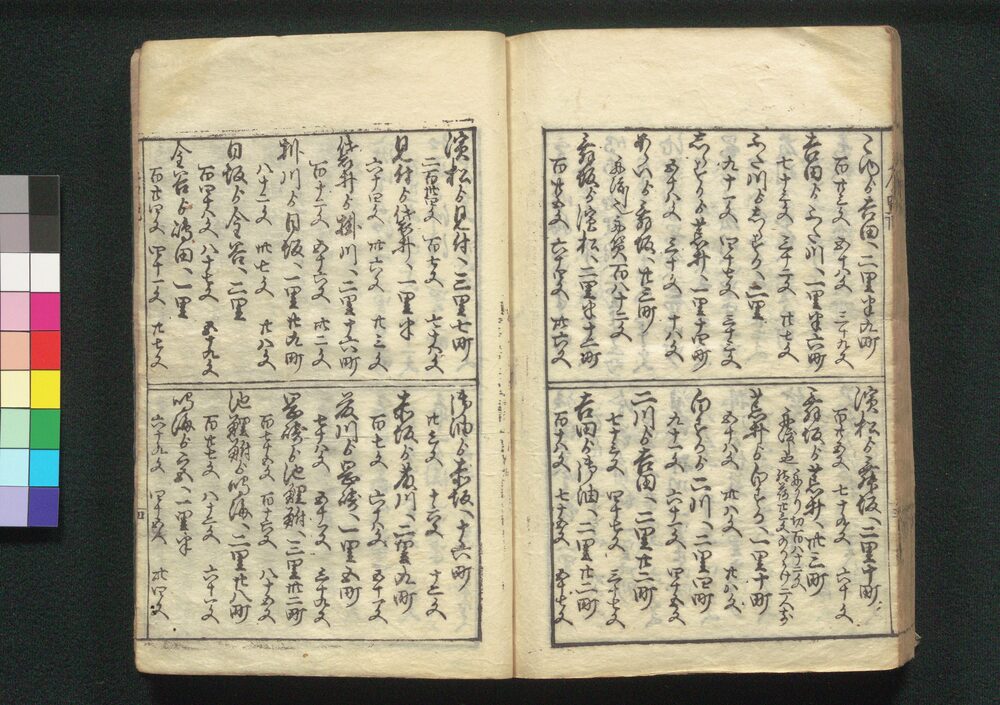 こゆゟ吉田へ二里半九町
百廿三文 五十八文 三十九文
吉田ゟふた川へ一里半六町
七十三文 三十二文 廿七文
ふた川ゟしらすかへ二里
九十一文 四十七文 三十三文
志らすかゟ荒井へ一里十四町
五十八文 三十文 十八文
あらいゟ舞坂へ廿三町
舟賃百八十二文
舞坂ゟ濱松へ二里半十二町
百廿五文 六十四文 卅六文
濱松ゟ舞坂へ二里十町
百廿五文 七十九文 六十文
舞坂ゟ荒井へ卅三町
舟渡也
荒井ゟ白すかへ一里十町
五十八文 卅八文 廿八文
白すかゟ二川へ二里四町
九十一文 六十一文 四十五文
二川ゟ吉田へ二里廿二町
七十三文 四十七文 三十七文
吉田ゟ御油へ二里廿二町
百十九文 七十五文 五十七文
濱松ゟ見付へ三里七町
二百廿四文 百七文 七十八文
見付ゟ袋井へ一里半
六十四文 卅六文 廿三文
袋井ゟ掛川へ二里十六町
百十二文 五十六文 卅二文
掛川ゟ日坂へ一里廿九町
八十二文 卅七文 廿八文
日坂ゟ金谷へ二里
百四十八文 八十七文 五十九文
金谷ゟ嶋田へ一里
百廿四文 四十一文 廿七文
御油ゟ赤坂へ十六町
廿三文 十六文 十三文
赤坂ゟ藤川へ二里九町
百七文 六十八文 五十一文
藤川ゟ岡崎へ一里五町
七十八文 五十文 三十九文
岡崎ゟ池鯉鮒へ三里廿二町
百七十五文 百十六文 八十五文
池鯉鮒ゟ鳴海へ二里廿八町
百廿七文 八十三文 六十一文
鳴海ゟ宮へ一里半
六十九文 四十五文 卅四文